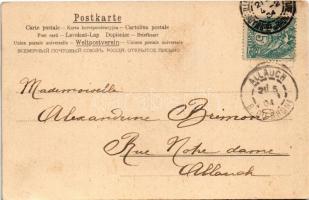 Postkarte
Carte postale - Karta korrespondencyjna - Cartolina postale
Post card - Levelező-Lap - Dopisnice - Briefkaart
Union postale universelle - Weltpostverein - Unione postale universale
ВСЕМІРНЫЙ ПОЧТОВЫЙ СОЮЗЪ. РОССІЯ. ОТКРЫТОЕ ПИСЬМО.
ALLAUCH
04
Mademoiselle
Alexandrine Brémond
Rue Notre dame
Allauch